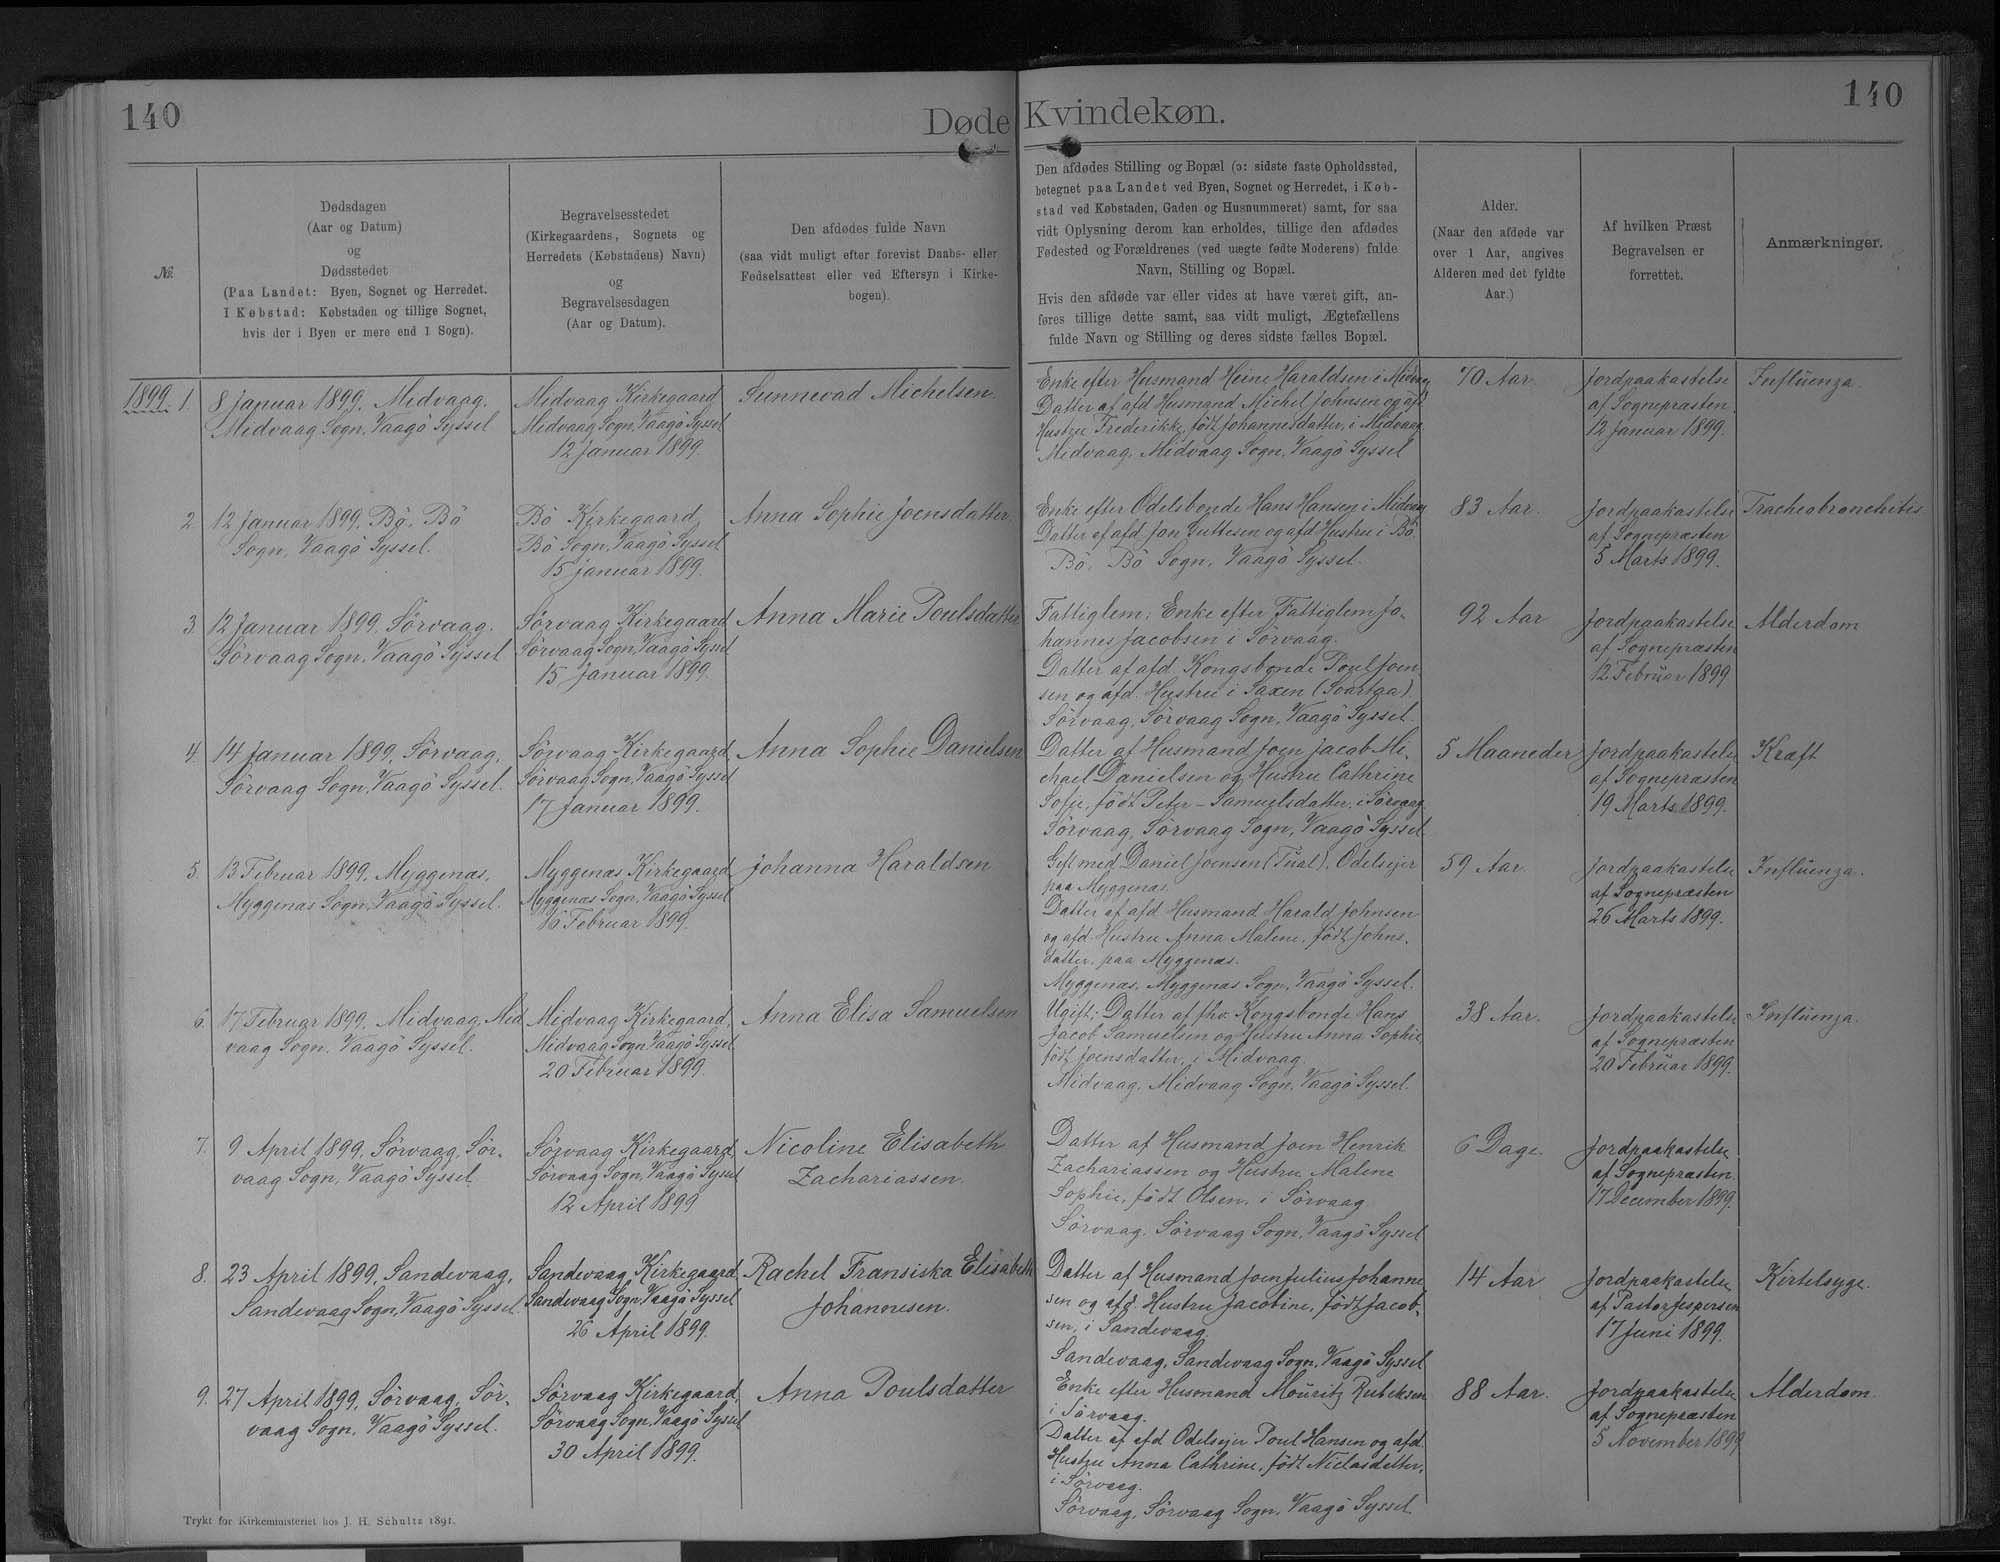 140
Døde Kvindekøn.
140
№.
Dødsdagen
(Aar og Datum)
og
Dødsstedet
(Paa Landet: Byen, Sognet og Herredet.
I Købstad: Købstaden og tillige Sognet,
hvis der i Byen er mere end 1 Sogn).
Begravelsesstedet
(Kirkegaardens, Sognets og
Herredets (Købstadens) Navn)
og
Begravelsesdagen
(Aar og Datum).
Den afdødes fulde Navn
(saa vidt muligt efter forevist Daabs- eller
Fødselsattest eller ved Eftersyn i Kirke-
bogen).
Den afdødes Stilling og Bopæl (ɔ: sidste faste Opholdssted,
betegnet paa Landet ved Byen, Sognet og Herredet, i Køb-
stad ved Købstaden, Gaden og Husnummeret) samt, for saa
vidt Oplysning derom kan erholdes, tillige den afdødes
Fødested og Forældrenes (ved uægte fødte Moderens) fulde
Navn, Stilling og Bopæl.
Hvis den afdøde var eller vides at have været gift, an-
føres tillige dette samt, saa vidt muligt, Ægtefællens
fulde Navn og Stilling og deres sidste fælles Bopæl.
Alder.
(Naar den afdøde var
over 1 Aar, angives
Alderen med det fyldte
Aar.)
Af hvilken Præst
Begravelsen er
forrettet.
Anmærkninger.
1899. 1.
8 Januar 1899. Midvaag.
Midvaag Sogn, Vaagö Syssel
Midvaag Kirkegaard
Midvaag Sogn, Vaagö Syssel
12 Januar 1899.
Sunnevad Michelsen.
Enke efter Husmand Heine Haraldsen i Midvaag
Datter af afd Husmand Michel Johnsen og afd
Hustru Frederikke, födt Johannesdatter, i Midvaag
Midvaag, Midvaag Sogn, Vaagö Syssel
70 Aar
Jordpaakastelse
af Sognepræsten
12 Januar 1899.
Influenza.
2
12 Januar 1899. Bö. Bö
Sogn, Vaagö Syssel.
Bö Kirkegaard
Bö Sogn, Vaagö Syssel
15 Januar 1899.
Anna Sophie Joensdatter
Enke efter Odelsbonde Hans Hansen i Midvaag
Datter af afd Jon Guttesen og afd Hustru i Bö
Bö, Bö Sogn, Vaagö Syssel.
83 Aar.
Jordpaakastelse
af Sognepræsten
5 Marts 1899.
Tracheobronchitis
3.
12 Januar 1899, Sörvaag.
Sörvaag Sogn, Vaagö Syssel
Sörvaag Kirkegaard
Sörvaag Sogn, Vaagö Syssel
15 Januar 1899.
Anna Marie Poulsdatter
Fattiglem; Enke efter Fattiglem Jo-
hannes Jacobsen i Sörvaag.
Datter af afd. Kongsbonde Poul Joen-
sen og afd. Hustru i Saxen (Svartaa).
Sörvaag, Sörvaag Sogn, Vaagö Syssel.
92 Aar
Jordpaakastelse
af Sognepræsten
12 Februar 1899
Alderdom
4.
14 Januar 1899, Sörvaag,
Sörvaag Sogn, Vaagö Syssel.
Sörvaag Kirkegaard
Sörvaag Sogn, Vaagö Syssel
17 Januar 1899.
Anna Sophie Danielsen
Datter af Husmand Joen Jacob Mi-
chael Danielsen og Hustru Cathrine
Sofie, födt Peter-Samuelsdatter, i Sörvaag.
Sörvaag, Sörvaag Sogn, Vaagö Syssel
5 Maaneder
Jordpaakastelse
af Sognepræsten
19 Marts 1899.
Kræft
5
13 Februar 1899, Myggenæs,
Myggenæs Sogn, Vaagö Syssel.
Myggenæs Kirkegaard
Myggenæs Sogn, Vaagö Syssel
16 Februar 1899.
Johanna Haraldsen
Gift med Daniel Joensen (Tual), Odelsejer
paa Myggenæs.
Datter af afd. Husmand Harald Johnsen
og afd. Hustru Anna Malene, födt Johns-
datter, paa Myggenæs.
Myggenæs, Myggenæs Sogn, Vaagö Syssel.
59 Aar.
Jordpaakastelse
af Sognepræsten
26 Marts 1899.
Influenza.
6.
17 Februar 1899, Midvaag, Mid
vaag Sogn, Vaagö Syssel.
Midvaag Kirkegaard,
Midvaag Sogn, Vaagö Syssel
20 Februar 1899.
Anna Elisa Samuelsen
Ugift; Datter af fhv. Kongsbonde Hans
Jacob Samuelsen og Hustru Anna Sophie,
födt Joensdatter, i Midvaag.
Midvaag, Midvaag Sogn, Vaagö Syssel.
38 Aar.
Jordpaakastelse
af Sognepræsten
20 Februar 1899.
Influenza.
7.
9 April 1899, Sörvaag, Sör-
vaag Sogn, Vaagö Syssel.
Sörvaag Kirkegaard,
Sörvaag Sogn, Vaagö Syssel
12 April 1899
Nicoline Elisabeth
Zachariassen.
Datter af Husmand Joen Henrik
Zachariassen og Hustru Malene
Sophie, födt Olsen, i Sörvaag
Sörvaag, Sörvaag Sogn, Vaagö Syssel
6 Dage.
Jordpaakastelse
af Sognepræsten.
17 December 1899.
8.
23 April 1899, Sandevaag,
Sandevaag Sogn, Vaagö Syssel.
Sandevaag Kirkegaard,
Sandevaag Sogn, Vaagö Syssel
26 April 1899.
Rachel Fransiska Elisabeth
Johannesen.
Datter af Husmand Joen Julius Johanne
sen og afd. Hustru Jacobine, födt Jacob-
sen, i Sandevaag.
Sandevaag, Sandevaag Sogn, Vaagö Syssel
14 Aar
Jordpaakastelse
af Pastor Jespersen
17 Juni 1899.
Kirtelsyge.
9.
27 April 1899, Sörvaag, Sör-
vaag Sogn, Vaagö Syssel.
Sörvaag Kirkegaard,
Sörvaag Sogn, Vaagö Syssel
30 April 1899.
Anna Poulsdatter
Enke efter Husmand Mouritz Rubeksen
i Sörvaag.
Datter af afd Odelsejer Poul Hansen og afd.
Hustru Anna Cathrine, födt Niclasdatter,
i Sörvaag.
Sörvaag, Sörvaag Sogn, Vaagö Syssel
88 Aar.
Jordpaakastelse
af Sognepræsten
5 November 1899
Alderdom.
Trykt for Kirkeministeriet hos J. H. Schultz 1891.